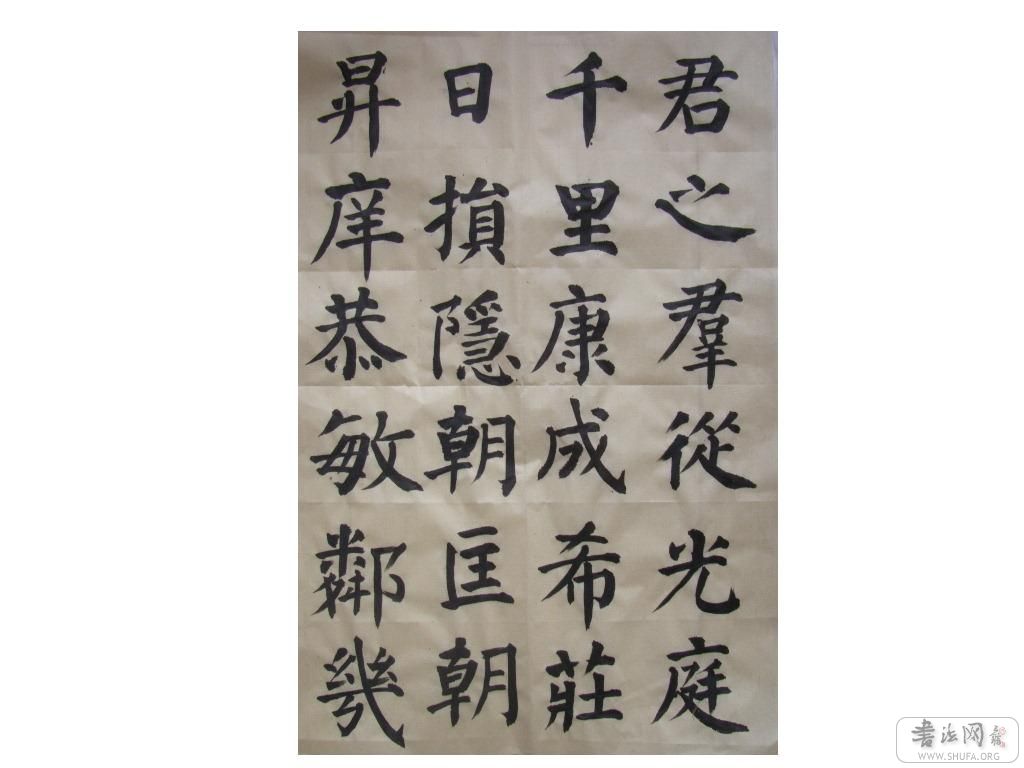 君之羣從光庭
千里康成希莊
日損隱朝匡朝
昇庠恭敏鄰幾
書法网
WWW.SHUFA.ORG